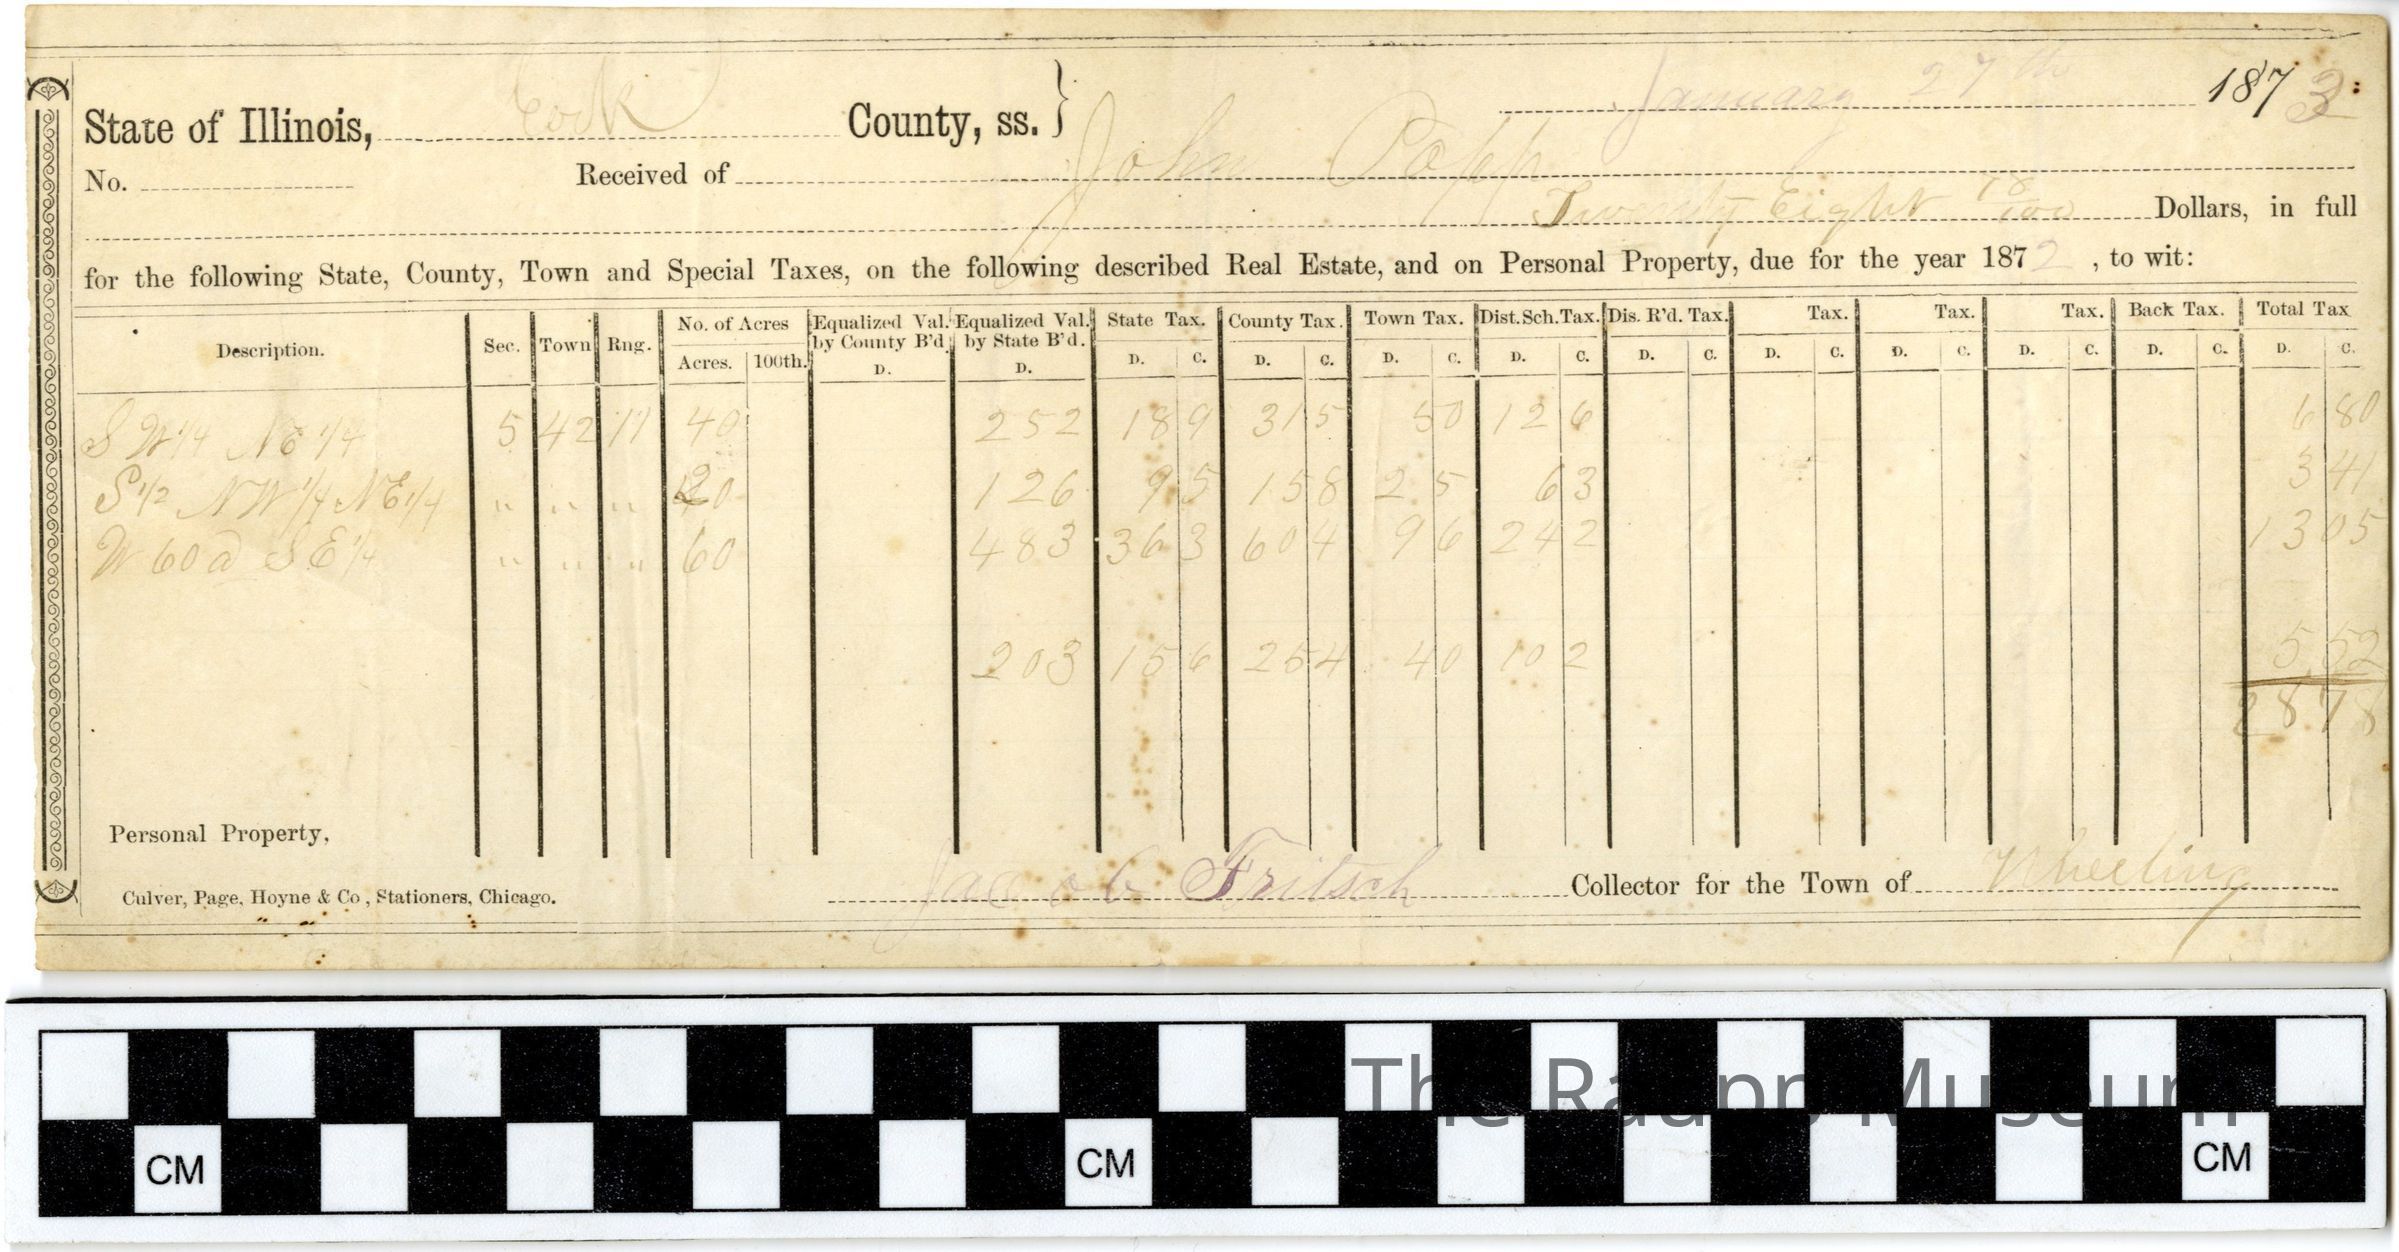 January 27th 1873
State of Illinois, Cook County, ss.}
No. Received of John Popp
Twenty Eight 78/100 Dollars, in full
for the following State, County, Town and Special Taxes, on the following described Real Estate, and on Personal Property, due for the year 1872, to wit:
Description. Sec. Town Rng. No. of Acres Equalized Val. by County B'd. Equalized Val. by State B'd. State Tax. County Tax. Town Tax. Dist. Sch. Tax. Dis. R'd. Tax. Tax. Tax. Tax. Back Tax. Total Tax
Acres. 100th. D. D. D. C. D. C. D. C. D. C. D. C. D. C. D. C. D. C. D. C. D. C.
S W 1/4 N E 1/4 5 42 11 40 252 1 89 3 15 50 1 26 6 80
S 1/2 N W 1/4 N E 1/4 " " " 20 126 95 1 58 25 63 3 41
W 60 a S E 1/4 " " " 60 483 3 63 6 04 96 2 42 13 05
203 1 56 2 54 40 1 02 5 52
28 78
Personal Property,
Jacob Fritsch Collector for the Town of Wheeling
Culver, Page, Hoyne & Co, Stationers, Chicago.
The Raupp Museum
CM CM CM